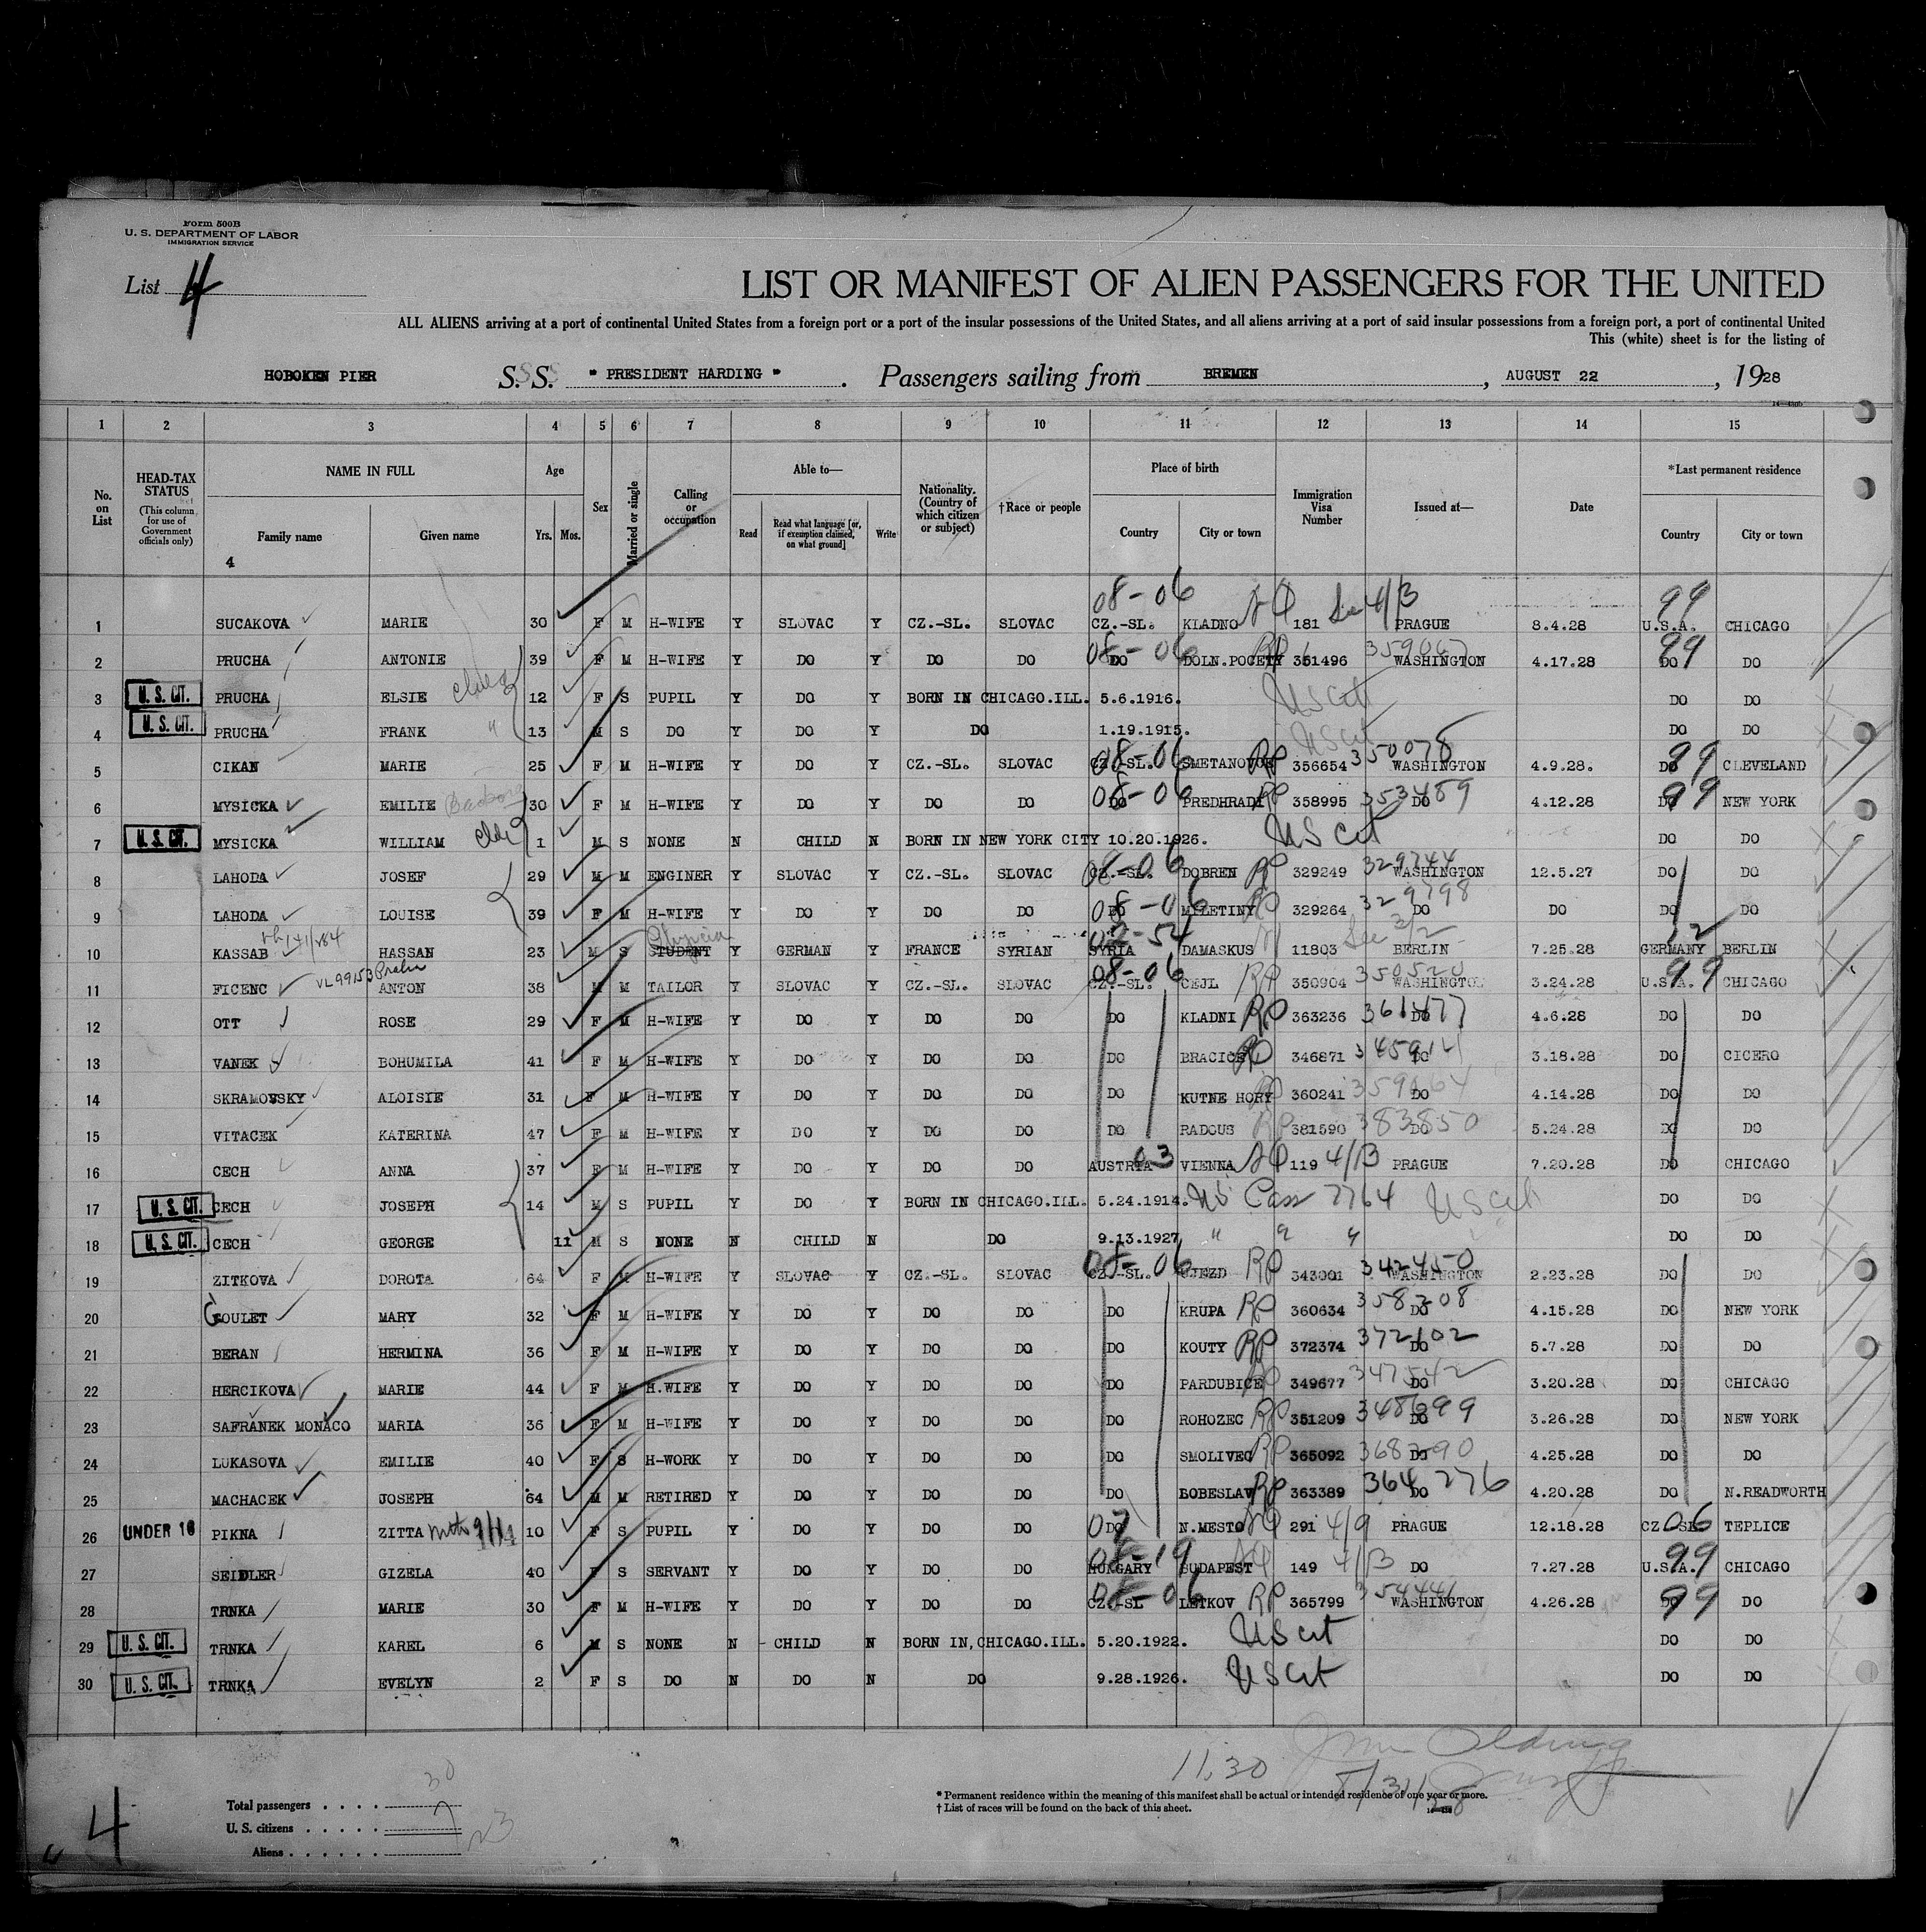 Form 500B
U. S. DEPARTMENT OF LABOR
IMMIGRATION SERVICE
List 4
LIST OR MANIFEST OF ALIEN PASSENGERS FOR THE UNITED
ALL ALIENS arriving at a port of continental United States from a foreign port or a port of the insular possessions of the United States, and all aliens arriving at a port of said insular possessions from a foreign port, a port of continental United
This (white) sheet is for the listing of
HOBOKEN PIER S. S. " PRESIDENT HARDING " . Passengers sailing from BREMEN , AUGUST 22 , 1928
1 2 3 4 5 6 7 8 9 10 11 12 13 14 15
No. on List
HEAD-TAX STATUS (This column for use of Government officials only)
NAME IN FULL Family name Given name
4
Age Yrs. Mos.
Sex
Married or single
Calling or occupation
Able to— Read Read what language [or, if exemption claimed, on what ground] Write
Nationality. (Country of which citizen or subject)
†Race or people
Place of birth Country City or town
Immigration Visa Number
Issued at—
Date
*Last permanent residence Country City or town
08-06 99
1 SUCAKOVA MARIE 30 F M H-WIFE Y SLOVAC Y CZ.-SL. SLOVAC CZ.-SL. KLADNO 181 See 4/B PRAGUE 8.4.28 U.S.A. CHICAGO
2 PRUCHA ANTONIE 39 F M H-WIFE Y DO Y DO DO 08-06 DO DOLN.POCETY RP 351496 WASHINGTON 4.17.28 99 DO DO
3 U. S. CIT. PRUCHA ELSIE 12 F S PUPIL Y DO Y BORN IN CHICAGO.ILL. 5.6.1916. US Cit DO DO
4 U. S. CIT. PRUCHA FRANK " 13 M S DO Y DO Y DO 1.19.1915. US Cit DO DO
5 CIKAN MARIE 25 F M H-WIFE Y DO Y CZ.-SL. SLOVAC 08-06 CZ.-SL. RP 356654 350078 WASHINGTON 4.9.28. 99 DO CLEVELAND
6 MYSICKA EMILIE 30 F M H-WIFE Y DO Y DO DO 08-06 DO PREDHRADI RP 358995 353489 DO 4.12.28 99 DO NEW YORK
7 U. S. CIT. MYSICKA WILLIAM 1 M S NONE N CHILD N BORN IN NEW YORK CITY 10.20.1926. US Cit DO DO
8 LAHODA JOSEF 29 M M ENGINER Y SLOVAC Y CZ.-SL. SLOVAC 08-06 CZ.-SL. DOBREN RP 329249 329744 WASHINGTON 12.5.27 DO DO
9 LAHODA LOUISE 39 F M H-WIFE Y DO Y DO DO 08-06 DO MILETINY RP 329264 329798 DO DO DO DO
10 KASSAB HASSAN 23 M S STUDENT Y GERMAN Y FRANCE SYRIAN 02-54 SYRIA DAMASKUS 11803 BERLIN 7.25.28 GERMANY BERLIN
11 FICENC VL99153 Praha ANTON 38 M M TAILOR Y SLOVAC Y CZ.-SL. SLOVAC 08-06 CZ.-SL. CEJL RP 350904 350520 WASHINGTON 3.24.28 99 U.S.A. CHICAGO
12 OTT ROSE 29 F M H-WIFE Y DO Y DO DO DO KLADNI RP 363236 361477 DO 4.6.28 DO DO
13 VANEK BOHUMILA 41 F M H-WIFE Y DO Y DO DO DO BRACICE RP 346871 DO 3.18.28 DO CICERO
14 SKRAMOVSKY ALOISIE 31 F M H-WIFE Y DO Y DO DO DO KUTNE HORY RP 360241 DO 4.14.28 DO DO
15 VITACEK KATERINA 47 F M H-WIFE Y DO Y DO DO DO RADOUS RP 381590 383850 DO 5.24.28 DO DO
16 CECH ANNA 37 F M H-WIFE Y DO Y DO DO AUSTRIA 03 VIENNA 119 4/B PRAGUE 7.20.28 DO CHICAGO
17 U. S. CIT. CECH JOSEPH 14 M S PUPIL Y DO Y BORN IN CHICAGO.ILL. 5.24.1914. US Pass 7764 US Cit DO DO
18 U. S. CIT. CECH GEORGE 11 M S NONE N CHILD N DO 9.13.1927 DO DO
19 ZITKOVA DOROTA 64 F M H-WIFE Y SLOVAC Y CZ.-SL. SLOVAC 08-06 CZ.-SL. UJEZD RP 343001 342450 WASHINGTON 2.23.28 DO DO
20 GOULET MARY 32 F M H-WIFE Y DO Y DO DO DO KRUPA RP 360634 358208 DO 4.15.28 DO NEW YORK
21 BERAN HERMINA 36 F M H-WIFE Y DO Y DO DO DO KOUTY RP 372374 372102 DO 5.7.28 DO DO
22 HERCIKOVA MARIE 44 F M H.WIFE Y DO Y DO DO DO PARDUBICE RP 349677 347542 DO 3.20.28 DO CHICAGO
23 SAFRANEK MONACO MARIA 36 F M H-WIFE Y DO Y DO DO DO ROHOZEC RP 351209 348699 DO 3.26.28 DO NEW YORK
24 LUKASOVA EMILIE 40 F S H-WORK Y DO Y DO DO DO SMOLIVEC RP 365092 DO 4.25.28 DO DO
25 MACHACEK JOSEPH 64 M M RETIRED Y DO Y DO DO DO RP 363389 364276 DO 4.20.28 DO N.READWORTH
26 UNDER 16 PIKNA ZITTA 10 F S PUPIL Y DO Y DO DO 07 DO N.MESTO 291 4/9 PRAGUE 12.18.28 CZ SL 06 TEPLICE
27 SEIDLER GIZELA 40 F S SERVANT Y DO Y DO DO HUNGARY BUDAPEST 149 4/B DO 7.27.28 99 U.S.A. CHICAGO
28 TRNKA MARIE 30 F M H-WIFE Y DO Y DO DO 08-06 CZ.-SL LETKOV RP 365799 354441 WASHINGTON 4.26.28 99 DO DO
29 U. S. CIT. TRNKA KAREL 6 M S NONE N CHILD N BORN IN,CHICAGO.ILL. 5.20.1922. US Cit DO DO
30 U. S. CIT. TRNKA EVELYN 2 F S DO N DO N DO 9.28.1926. US Cit DO DO
11.30
8/31/28
Total passengers . . . . 30
U. S. citizens . . . . . 7
Aliens . . . . . . 23
4
* Permanent residence within the meaning of this manifest shall be actual or intended residence of one year or more.
† List of races will be found on the back of this sheet.